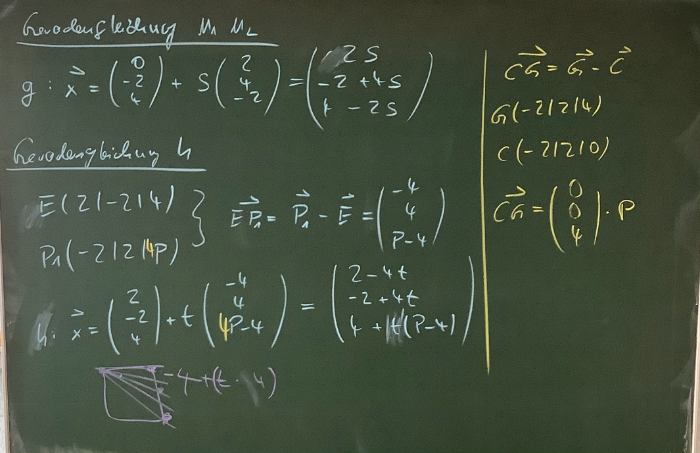 Geradengleichung M₁ M₂
g : x⃗ = (0 -2 4) + s (2 4 -2) = (2s -2+4s 4-2s)
Geradengleichung h
E(2|-2|4)
P₁(-2|2|4P)
EP₁⃗ = P₁⃗ - E⃗ = (-4 4 P-4)
h: x⃗ = (2 -2 4) + t (-4 4 4P-4) = (2-4t -2+4t 4+t(P-4))
-4+(t · 4)
CG⃗ = G⃗ - C⃗
G(-2|2|4)
C(-2|2|0)
CG⃗ = (0 0 4) · P